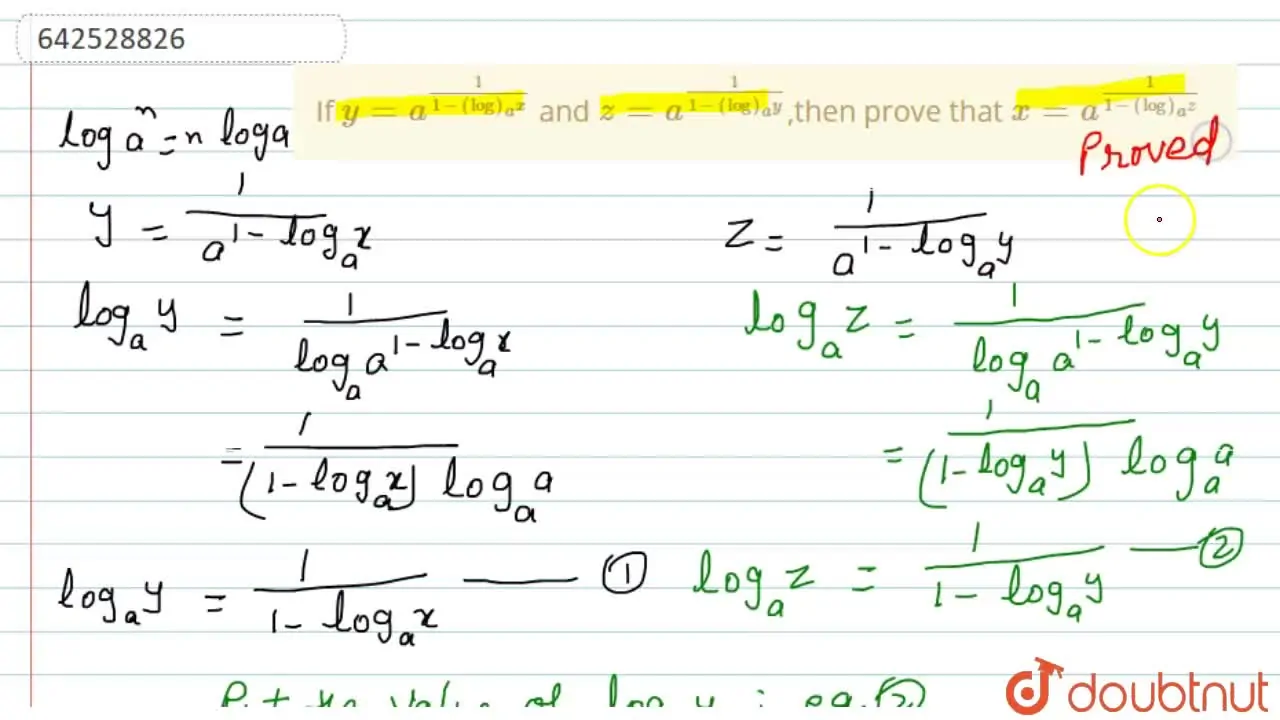 642528826
If y = a^(1/(1−(log)_a x)) and z = a^(1/(1−(log)_a y)) ,then prove that x = a^(1/(1−(log)_a z))
Proved
log a^n = n log a
y = 1/(a^(1 - log_a x))
log_a y = 1/(log_a a^(1 - log_a x))
= 1/((1 - log_a x) log_a a)
log_a y = 1/(1 - log_a x) —— ①
z = 1/(a^(1 - log_a y))
log_a z = 1/(log_a a^(1 - log_a y))
= 1/((1 - log_a y) log_a a)
log_a z = 1/(1 - log_a y) —— ②
value of log y eq. ②
doubtnut